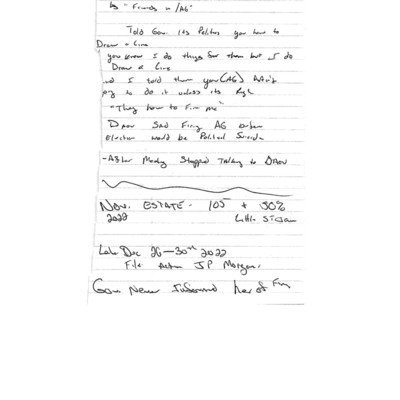 by "Friends in /AG"
Told Gov. its Politics you have to
Draw a Line
you know I do things for them but I do
Draw a Line
and I told them you (AG) Aint
going to do it unless its Right
"They have to Fire me"
Said Firing AG before
Election would be Political Suicide
-After Stopped Talking to
Nov. ESTATE - 105 + 30%
2022 Little St Jam
Late Dec 26-30th 2022
File Action JP Morgan.
Gov Never Informed her of Firing